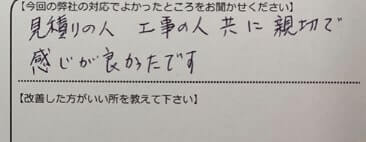 【今回の弊社の対応でよかったところをお聞かせください】
見積りの人 工事の人 共に 親切で
感じが良かったです
【改善した方がいい所を教えて下さい】